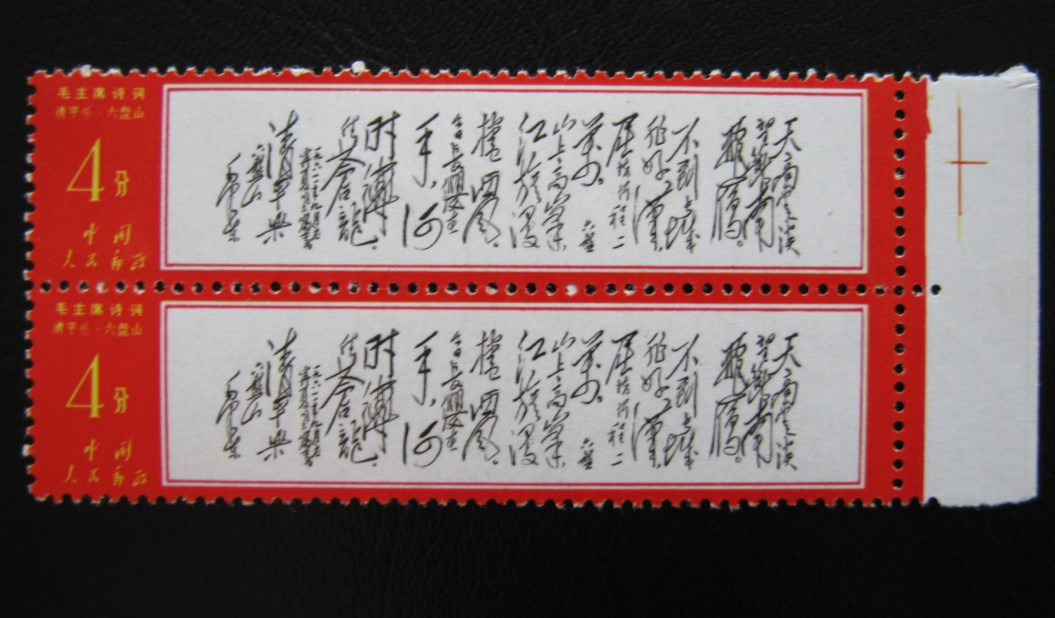 毛主席诗词
清平乐·六盘山
4分
中国
人民邮政
天高雲淡
望断南
飛雁。
不到长城
非好漢，
屈指行程二
万。六盤
山上高峯
红旗漫
捲西风。
今日长缨在
手，何
时缚
住苍龍
清平樂
六盤山
毛泽东
毛主席诗词
清平乐·六盘山
4分
中国
人民邮政
天高雲淡
望断南
飛雁。
不到长城
非好漢，
屈指行程二
万。六盤
山上高峯
红旗漫
捲西风。
今日长缨在
手，何
时缚
住苍龍
清平樂
六盤山
毛泽东